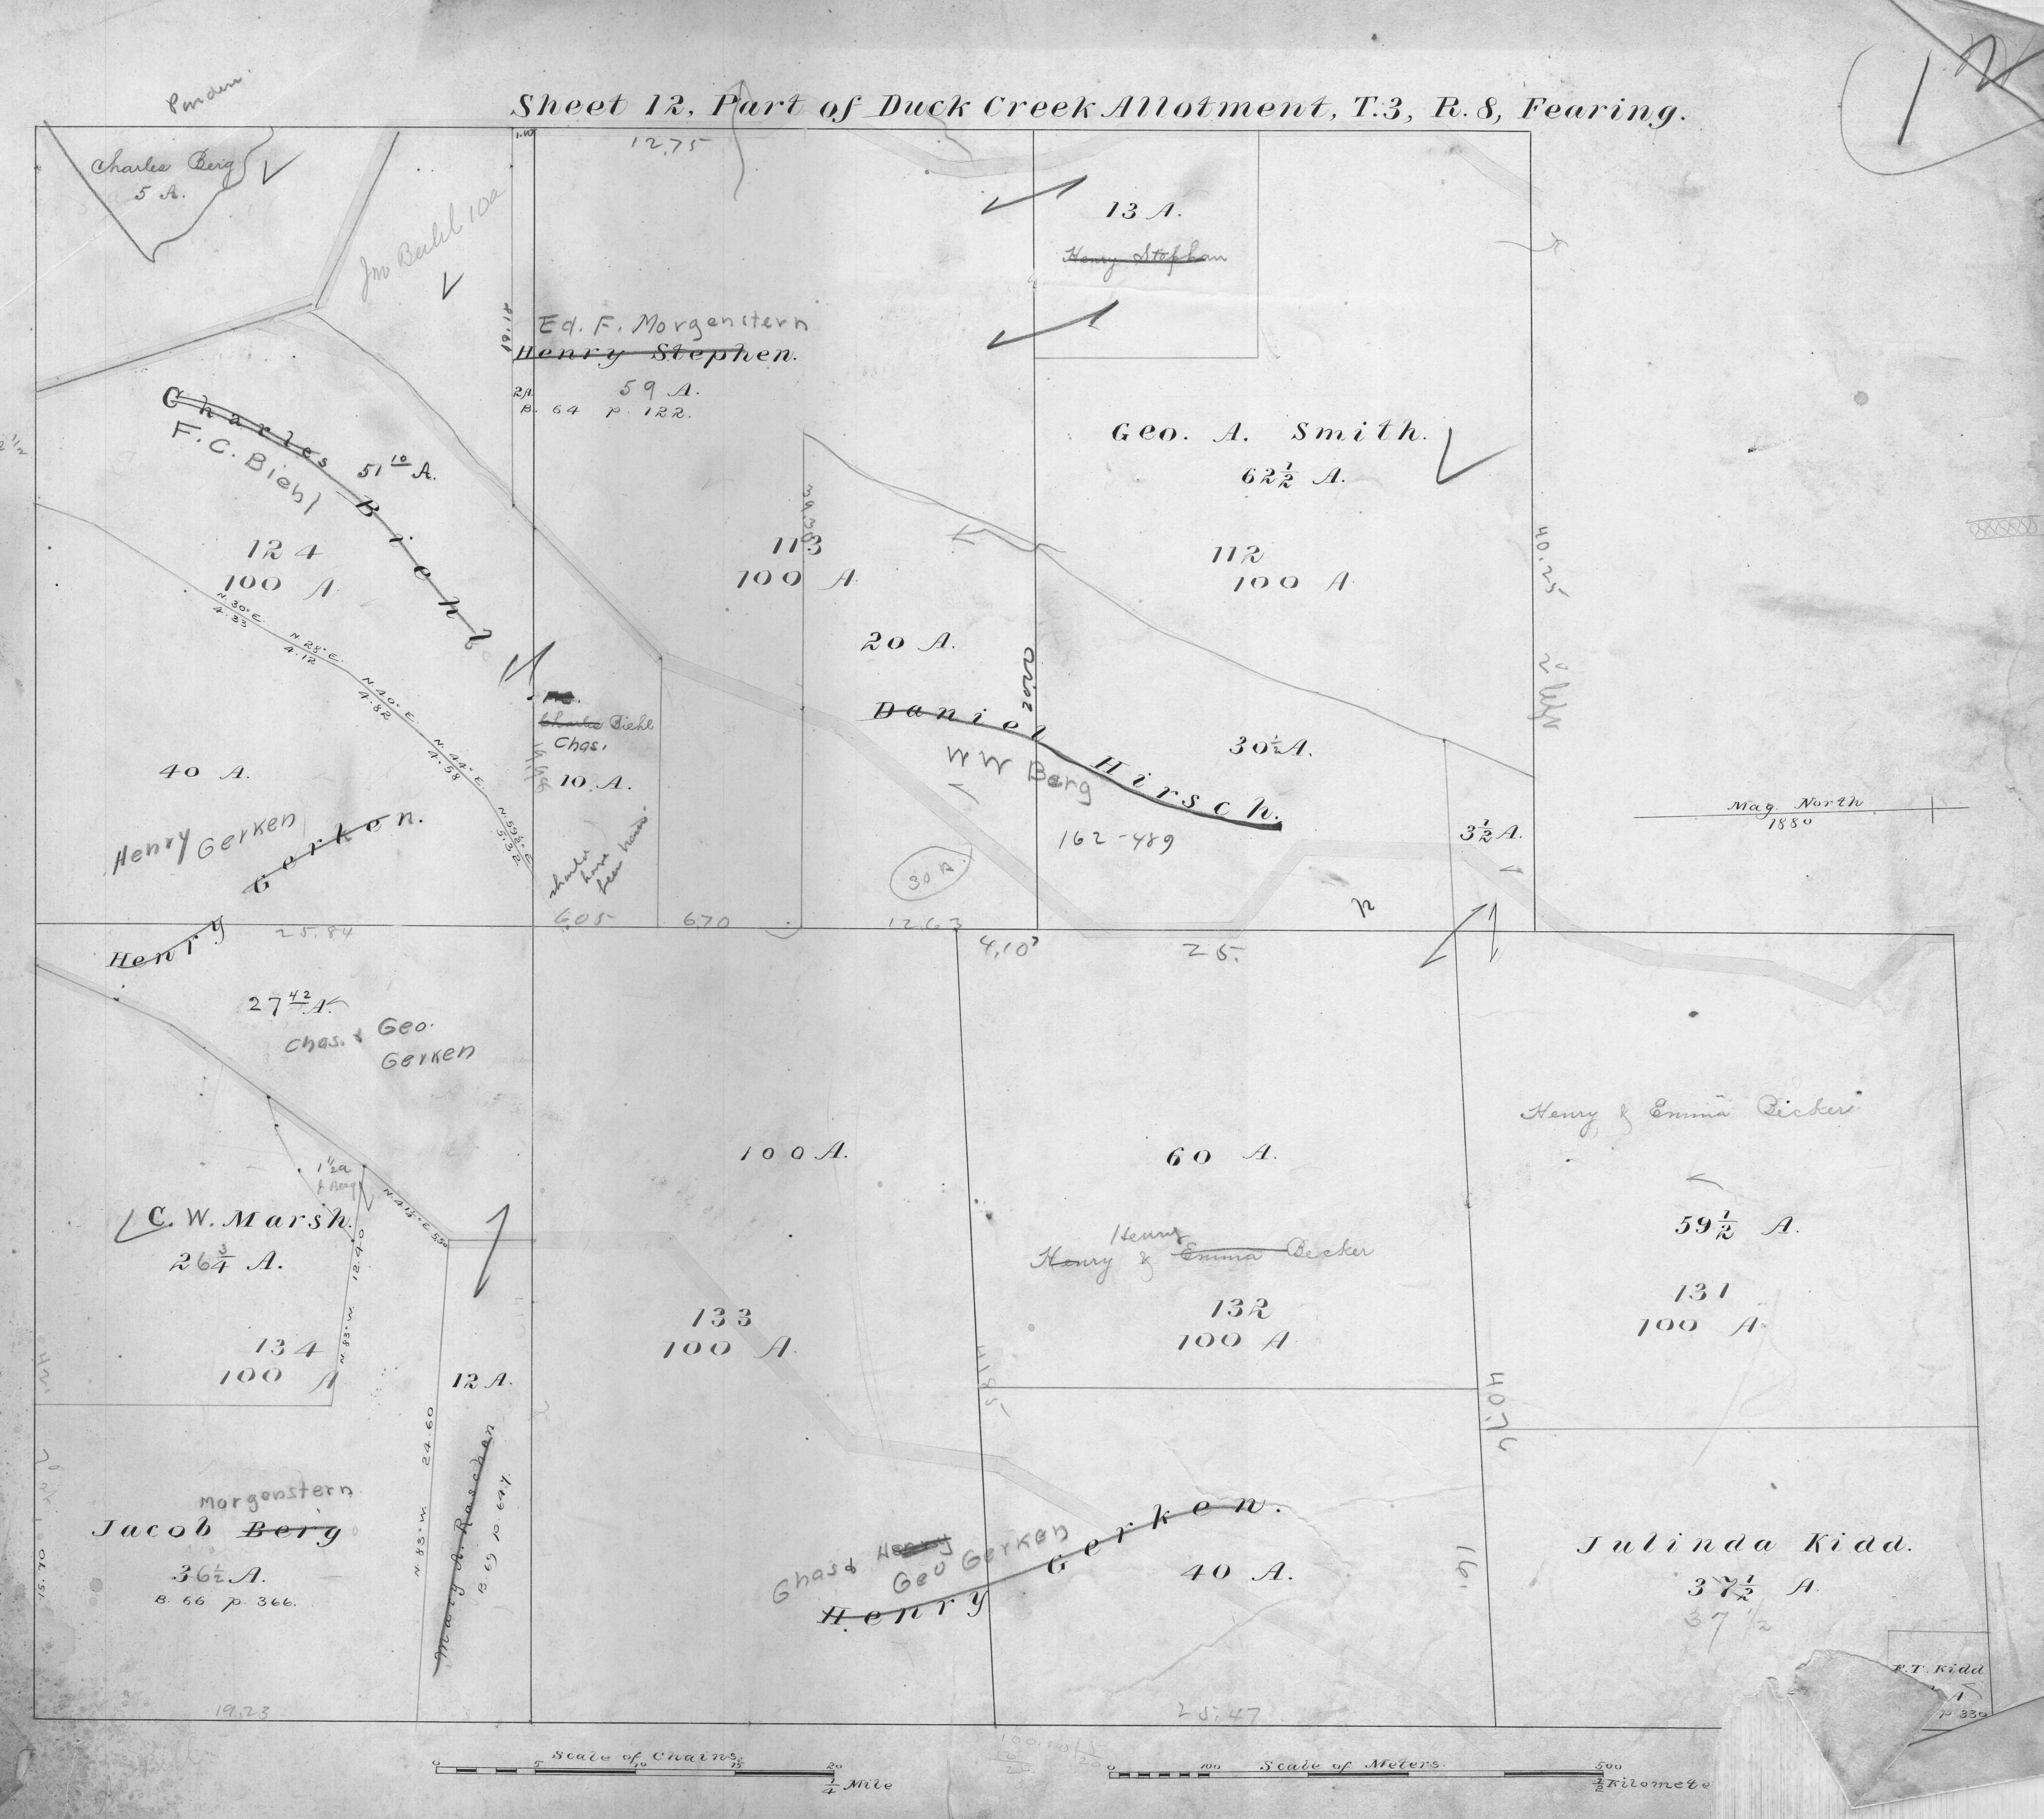 Sheet 12, Part of Duck Creek Allotment, T.3, R.8, Fearing.
Charles Berg
5 A.
Jno Biehl 10a
1.10
12.75
19.18
Ed. F. Morgenstern
Henry Stephen.
2A.
59 A.
B. 64 p. 122.
13 A.
Henry Stephan
Geo. A. Smith.
62½ A.
112
100 A
40.25
Charles Biehl
F. C. Biehl
51 10 A.
124
100 A
N. 30° E.
4.33
N. 28° E.
4.12
N. 40° E.
4.82
N. 44° E.
4.58
N. 59½° E.
5.32
40 A.
Henry Gerken
Henry Gerken.
113
100 A
39.38
20 A.
Daniel Hirsch.
W W Berg
30½ A.
162-489
30 A.
3½ A.
Charles Biehl
Chas.
10 A.
should have been
6.05
670
12.63
4.10
25.
25.84
Mag. North
1880
27 42 A.
Chas. & Geo.
Gerken
1½a
J. Berg
N. 41½° E. 5.50
C. W. Marsh.
26¾ A.
N. 83° W. 12.40
134
100 A
12 A.
Mary A. Raschen
B. 69 p. 647.
N. 83° W. 24.60
Morgenstern
Jacob Berg
36½ A.
B. 66 p. 366.
15.70
19.23
100 A.
133
100 A.
60 A.
Henry
Henry & Emma Becker
132
100 A
41.85
Henry & Emma Becker
59½ A.
131
100 A.
40.76
Chas & Henry
Geo Gerken
Henry Gerken.
40 A.
16.
25.47
Julinda Kidd.
37½ A.
37 1/2
F.T. Kidd
A
p 330
Scale of Chains.
0 5 10 15 20
¼ Mile
Scale of Meters.
0 100 500
½ Kilomete